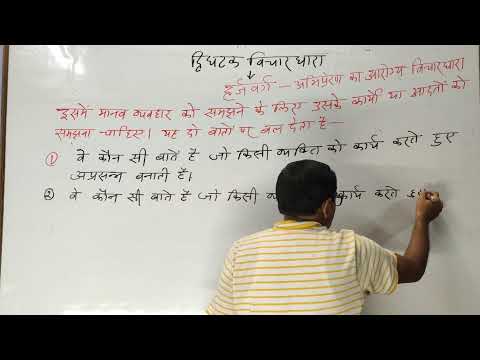 द्विघटक विचारधारा
हर्जवर्ग :- अभिप्रेरण का आरोग्य विचारधारा
इसमें मानव व्यवहार को समझने के लिए उसके कार्यो या आदतों को
समझना चाहिए। यह दो बातों पर बल देता है—
① वे कौन सी बातें है जो किसी व्यक्ति को कार्य करते हुए
अप्रसन्न बनाती हैं।
② वे कौन सी बाते है जो किसी कार्य करते